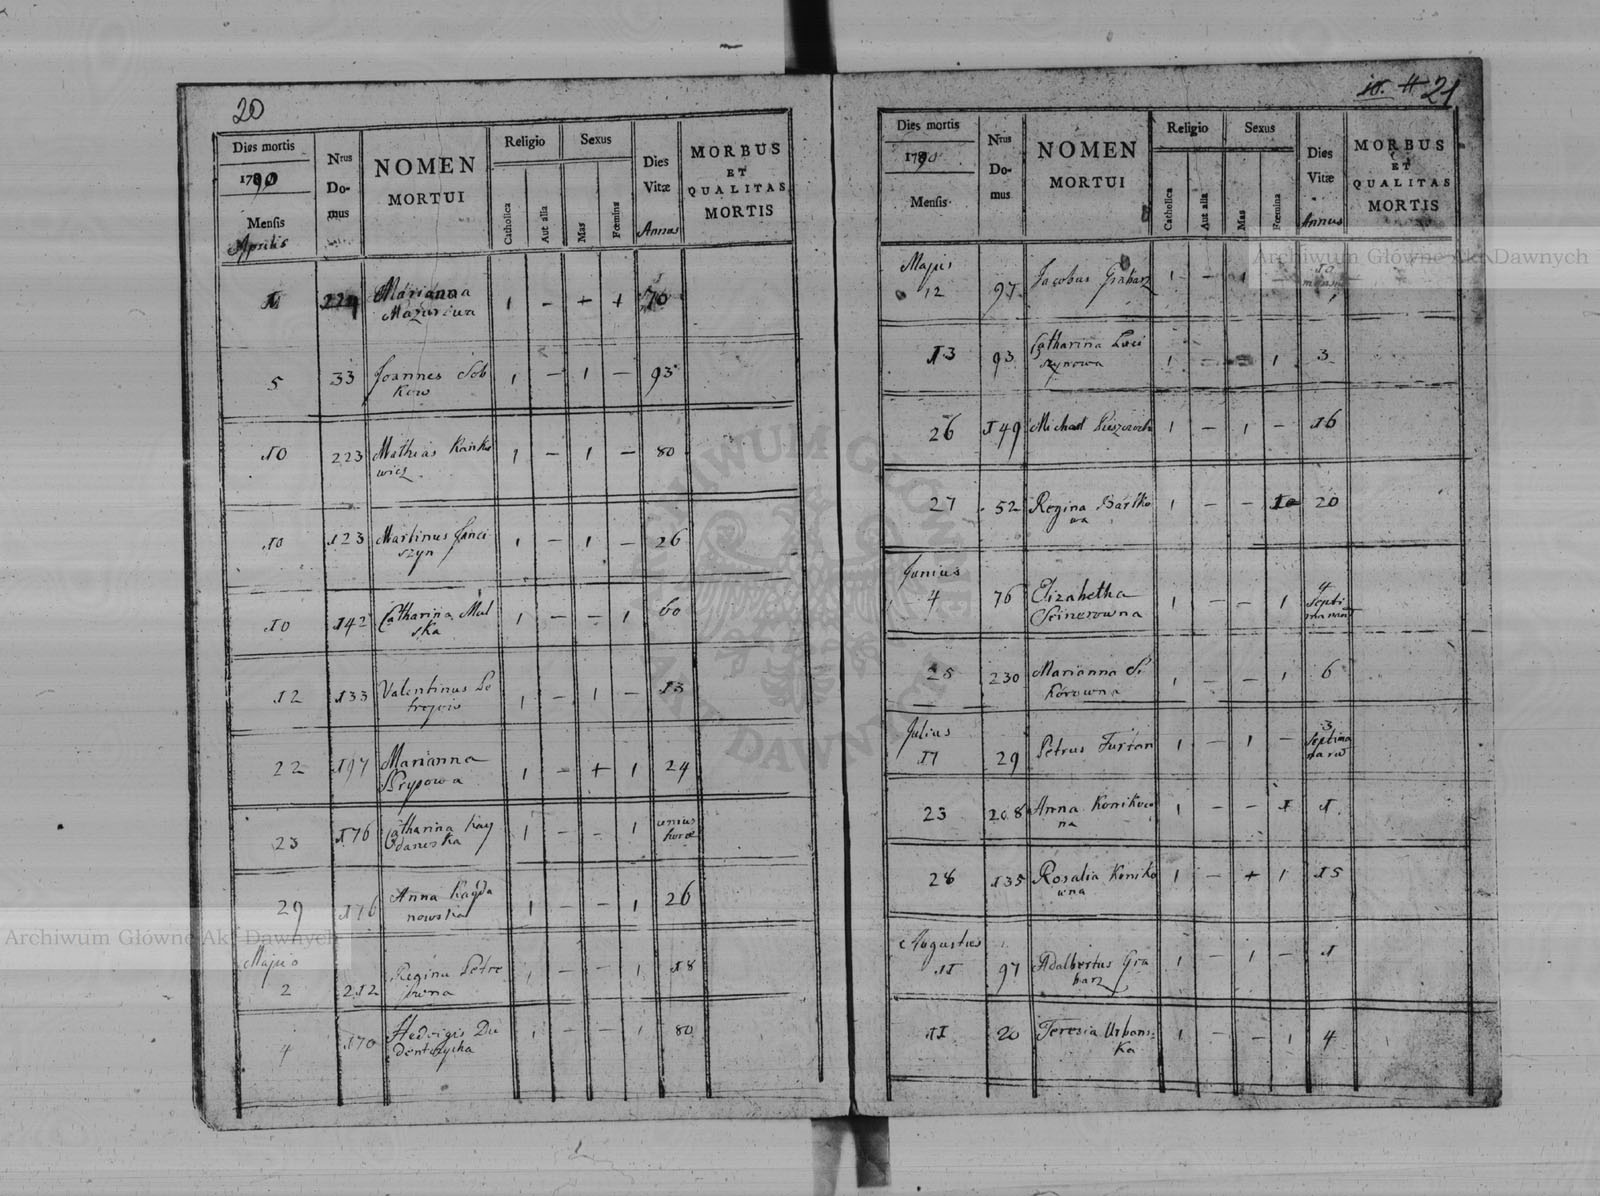 20
Dies mortis
1790
Mensis
Aprilis
Nrus
Do-
mus
NOMEN
MORTUI
Religio
Catholica
Aut alia
Sexus
Mas
Fœmina
Dies
Vitæ
Annus
MORBUS
ET
QUALITAS
MORTIS
Marianna 1 - + + 70
5 33 Joannes Sob 1 - 1 - 93
kow
10 223 Mathias 1 - 1 - 80
wicz
10 123 Martinus 1 - 1 - 26
szyn
10 142 Catharina Mul 1 - - 1 60
ska
12 133 Valentinus 1 - 1 - 13
22 197 Marianna 1 - + 1 24
23 176 Catharina 1 - - 1 unius
horæ
29 176 Anna Kagda 1 - - 1 26
nowska
2 212 Regina Petre 1 - - 1 18
4 170 Hedvigis Du 1 - - 1 80
21
Dies mortis
1790
Mensis
Nrus
Do-
mus
NOMEN
MORTUI
Religio
Catholica
Aut alia
Sexus
Mas
Fœmina
Dies
Vitæ
Annus
MORBUS
ET
QUALITAS
MORTIS
Majus
12 97 Jacobus Grabarz 1 - 1
13 93 Catharina 1 - 1 3
szynowa
26 149 Michael 1 - 1 - 16
27 52 Regina Bartko 1 - - 20
wa
Junius
4 76 Elizabetha 1 - - 1 4
Septi
manarum
25 230 Marianna Si 1 - - 1 6
korowna
Julius
17 29 Petrus Furtan 1 - 1 - 3
Septima
narum
23 208 Anna Konikow 1 - - 1 1
na
28 135 Rosalia Koniko 1 - + 1 15
wna
Augustus
11 97 Adalbertus Gra 1 - 1 - 1
barz
11 20 Teresia Urbans- 1 - - 1 4
ka
Archiwum Główne Akt Dawnych
Archiwum Główne Akt Dawnych
ARCHIWUM GŁÓWNE AKT DAWNYCH